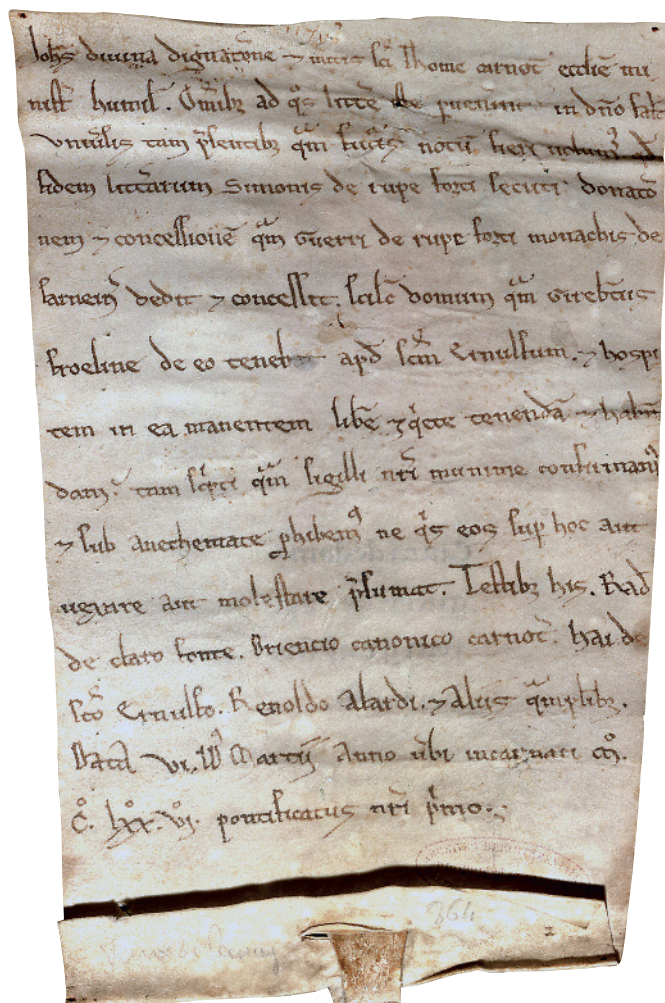 Ioh̅s divina dignatio̅ne ⁊ m̅itis s̅ci Thome carnot̅ eccl̅ie mi
nist̅ humil̅. Om̅ibꝫ ad q̅s litt̅e he p̅uenint in d̅no salt̅
vniu̅sis tam p̅sentibꝫ q̅m futu̅is notu̅ fieri uolumꝰ q̅d
fidem litt̅arum Simonis de rupe forti secuti donatio̅
nem ⁊ concessione̅ q̅m Gu̅erri de rupe forti monachis de
sarnein̅ dedit ⁊ concessit; scilic̅ domum q̅m Gireb̅tus
froeline de eo tenebat ap̅d s̅c̅m Ernulfum. ⁊ hospi
tem in ea manentem lib̅e ⁊ q̅ete tenenda̅ ⁊ habe̅n
dam. tam sc̅pti q̅m sigilli n̅ri munime confirmamꝰ
⁊ sub anethemate ꝓhibemꝰ ne q̅s eos sup̅ hoc aut
uexare aut molestare p̅sumat. Testibꝫ his. Rad̅
de claro fonte. Briencio canonico carnot̅. hai. de
sc̅o Ernulfo. Renoldo Alardi. ⁊ Aliis q̅mplibꝫ.
Data̅ vi. Id̅ Martii Anno u̅bi incarnati m̊.
c̊. lxx̊. vi̊. pontificatus n̅ri p̅mo.
364